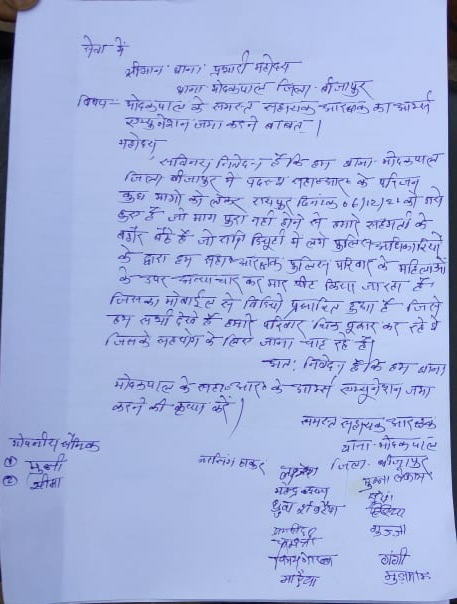 सेवा में
श्रीमान थाना प्रभारी महोदय
थाना मोदकपाल जिला - बीजापुर
विषय = मोदकपाल के समस्त सहायक आरक्षक का आर्म्स
एम्युनेशन जमा करने बाबत।
महोदय,
सविनय निवेदन है कि हम थाना मोदकपाल
जिला बीजापुर में पदस्थ सहा॰आर॰ के परिजन
कुछ मांगो को लेकर रायपुर दिनांक 06/12/21 को गये
हुए है जो मांग पुरा नही होने से हमारे सहमती के
बगैर बैठे है जो रात्रि ड्यूटी में लगे पुलिस अधिकारियों
के द्वारा हम सहा॰आरक्षक पुलिस परिवार के महिलाओं
के उपर अत्याचार कर मार पीट किया जा रहा है
जिसका मोबाईल से विडियो प्रसारित हुआ है जिसे
हम सभी देखे है हमारे परिवार चिख पुकार कर रहे है
जिसके सहयोग के लिए जाना चाह रहे है।
अतः निवेदन है कि हम थाना
मोदकपाल के सहा॰आर॰ के आर्म्स एम्युनेशन जमा
करने की कृपा करें।
समस्त सहायक आरक्षक
थाना - मोदकपाल
जिला - बीजापुर
गोपनीय सैनिक
① मुन्नी
② सीमा